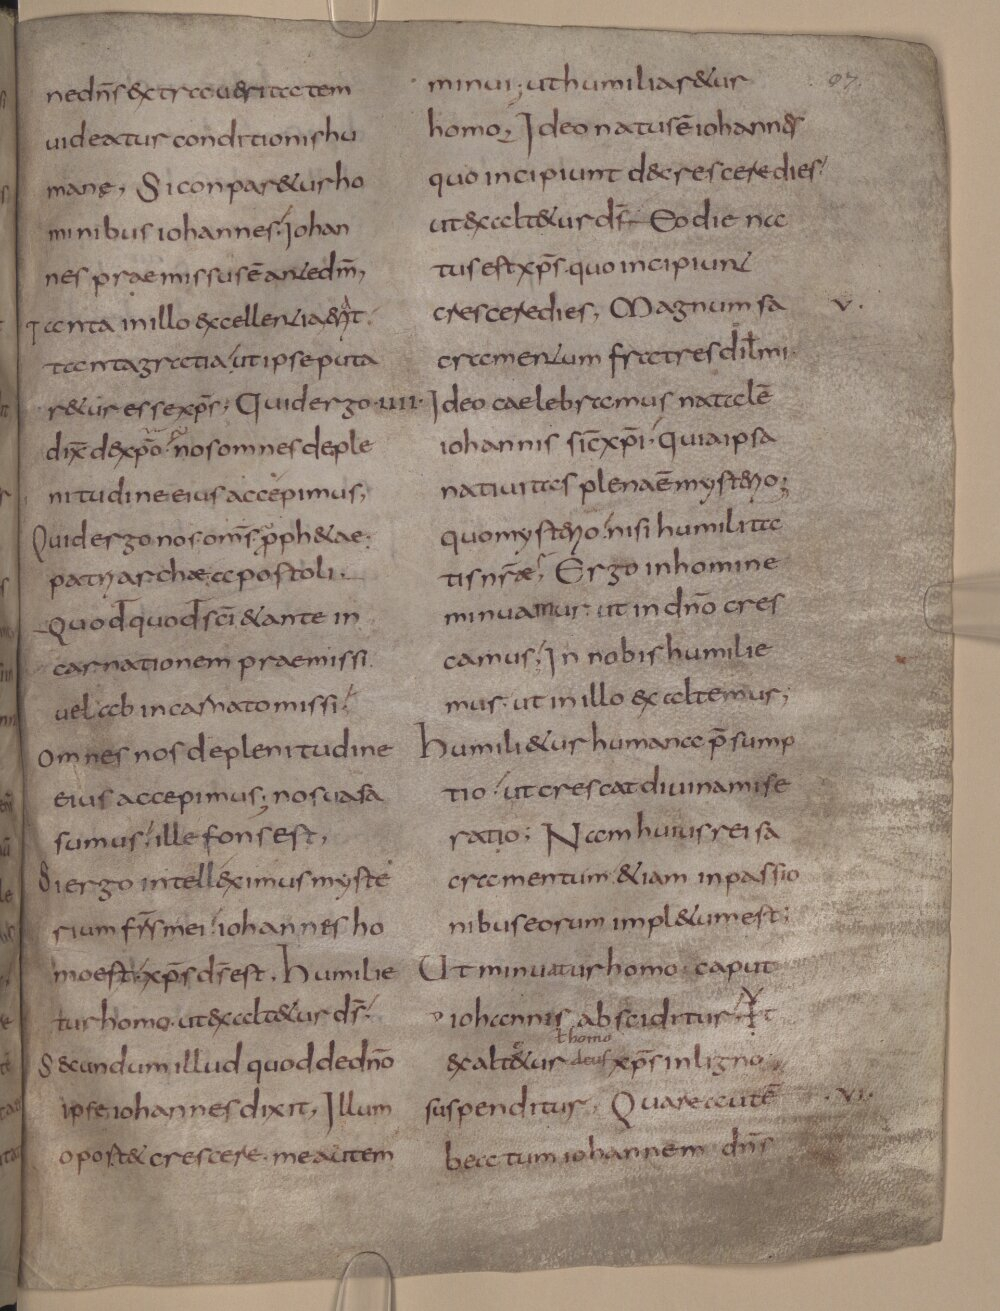 nedn̄s &xtrauəritatem
uideatur conditionishu
mane, Siconpar&urho
minibus iohannes; Iohan
nes praemissusē antedm̄,
Tanta inillo excellentiaerat.
tantagratia, ut ipse puta
r&ur essexp̄s; Quidergo
dix̄ dexp̄o; nosomnes deple
nitudine eius accepimus,
Quidergo nos om̄s proph&ae.
patriarchæ, apostoli.
Quod quod sc̄i & ante in
carnationem praemissi
uel ab incarnato missi;
omnes nos deplenitudine
eius accepimus; nosuasa
sumus, ille fons est,
Siergo intelleximus myste
rium fr̄s mei; iohannes ho
moest, xp̄s ds̄ est. Humilie
turhomo, ut&xalt&ur ds̄,
S&cundum illud quoddedn̄o
ipse iohannes dixit, Illum
oport& crescere. me autem
minui; uthumiliar&ur
homo; Ideo natusē iohannes
quo incipiunt decrescere dies,
ut&xalt&ur ds̄. Eodie na
tus est xp̄s. quo incipiunt
crescere dies, Magnum sa
cramentum fratres dil̄mi.
Ideo caelebramus natalē
iohannis sic̄ xp̄i. quia ipsa
natiuitas plenaē mysterio;
quo mysterio, nisi humilita
tis nr̄æ; Ergo inhomine
minuamur ut in dn̄o cres
camus; In nobis humilie
mus. ut in illo &xaltemus;
Humili&ur humana p̄sump
tio, ut crescat diuina mise
ratio; Nam huius rei sa
cramentum &iam inpassio
nibus eorum impl&um est;
Ut minuatur homo. caput
iohannis absciditur; Ut
&xalt&ur xp̄s in ligno
thomo
deus
suspenditur, Quare autē
beatum iohannem dn̄s
07.
IIII.
V.
.VI.